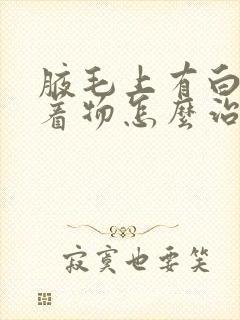 腋毛上有白
着物怎麼治
寂寞也要笑